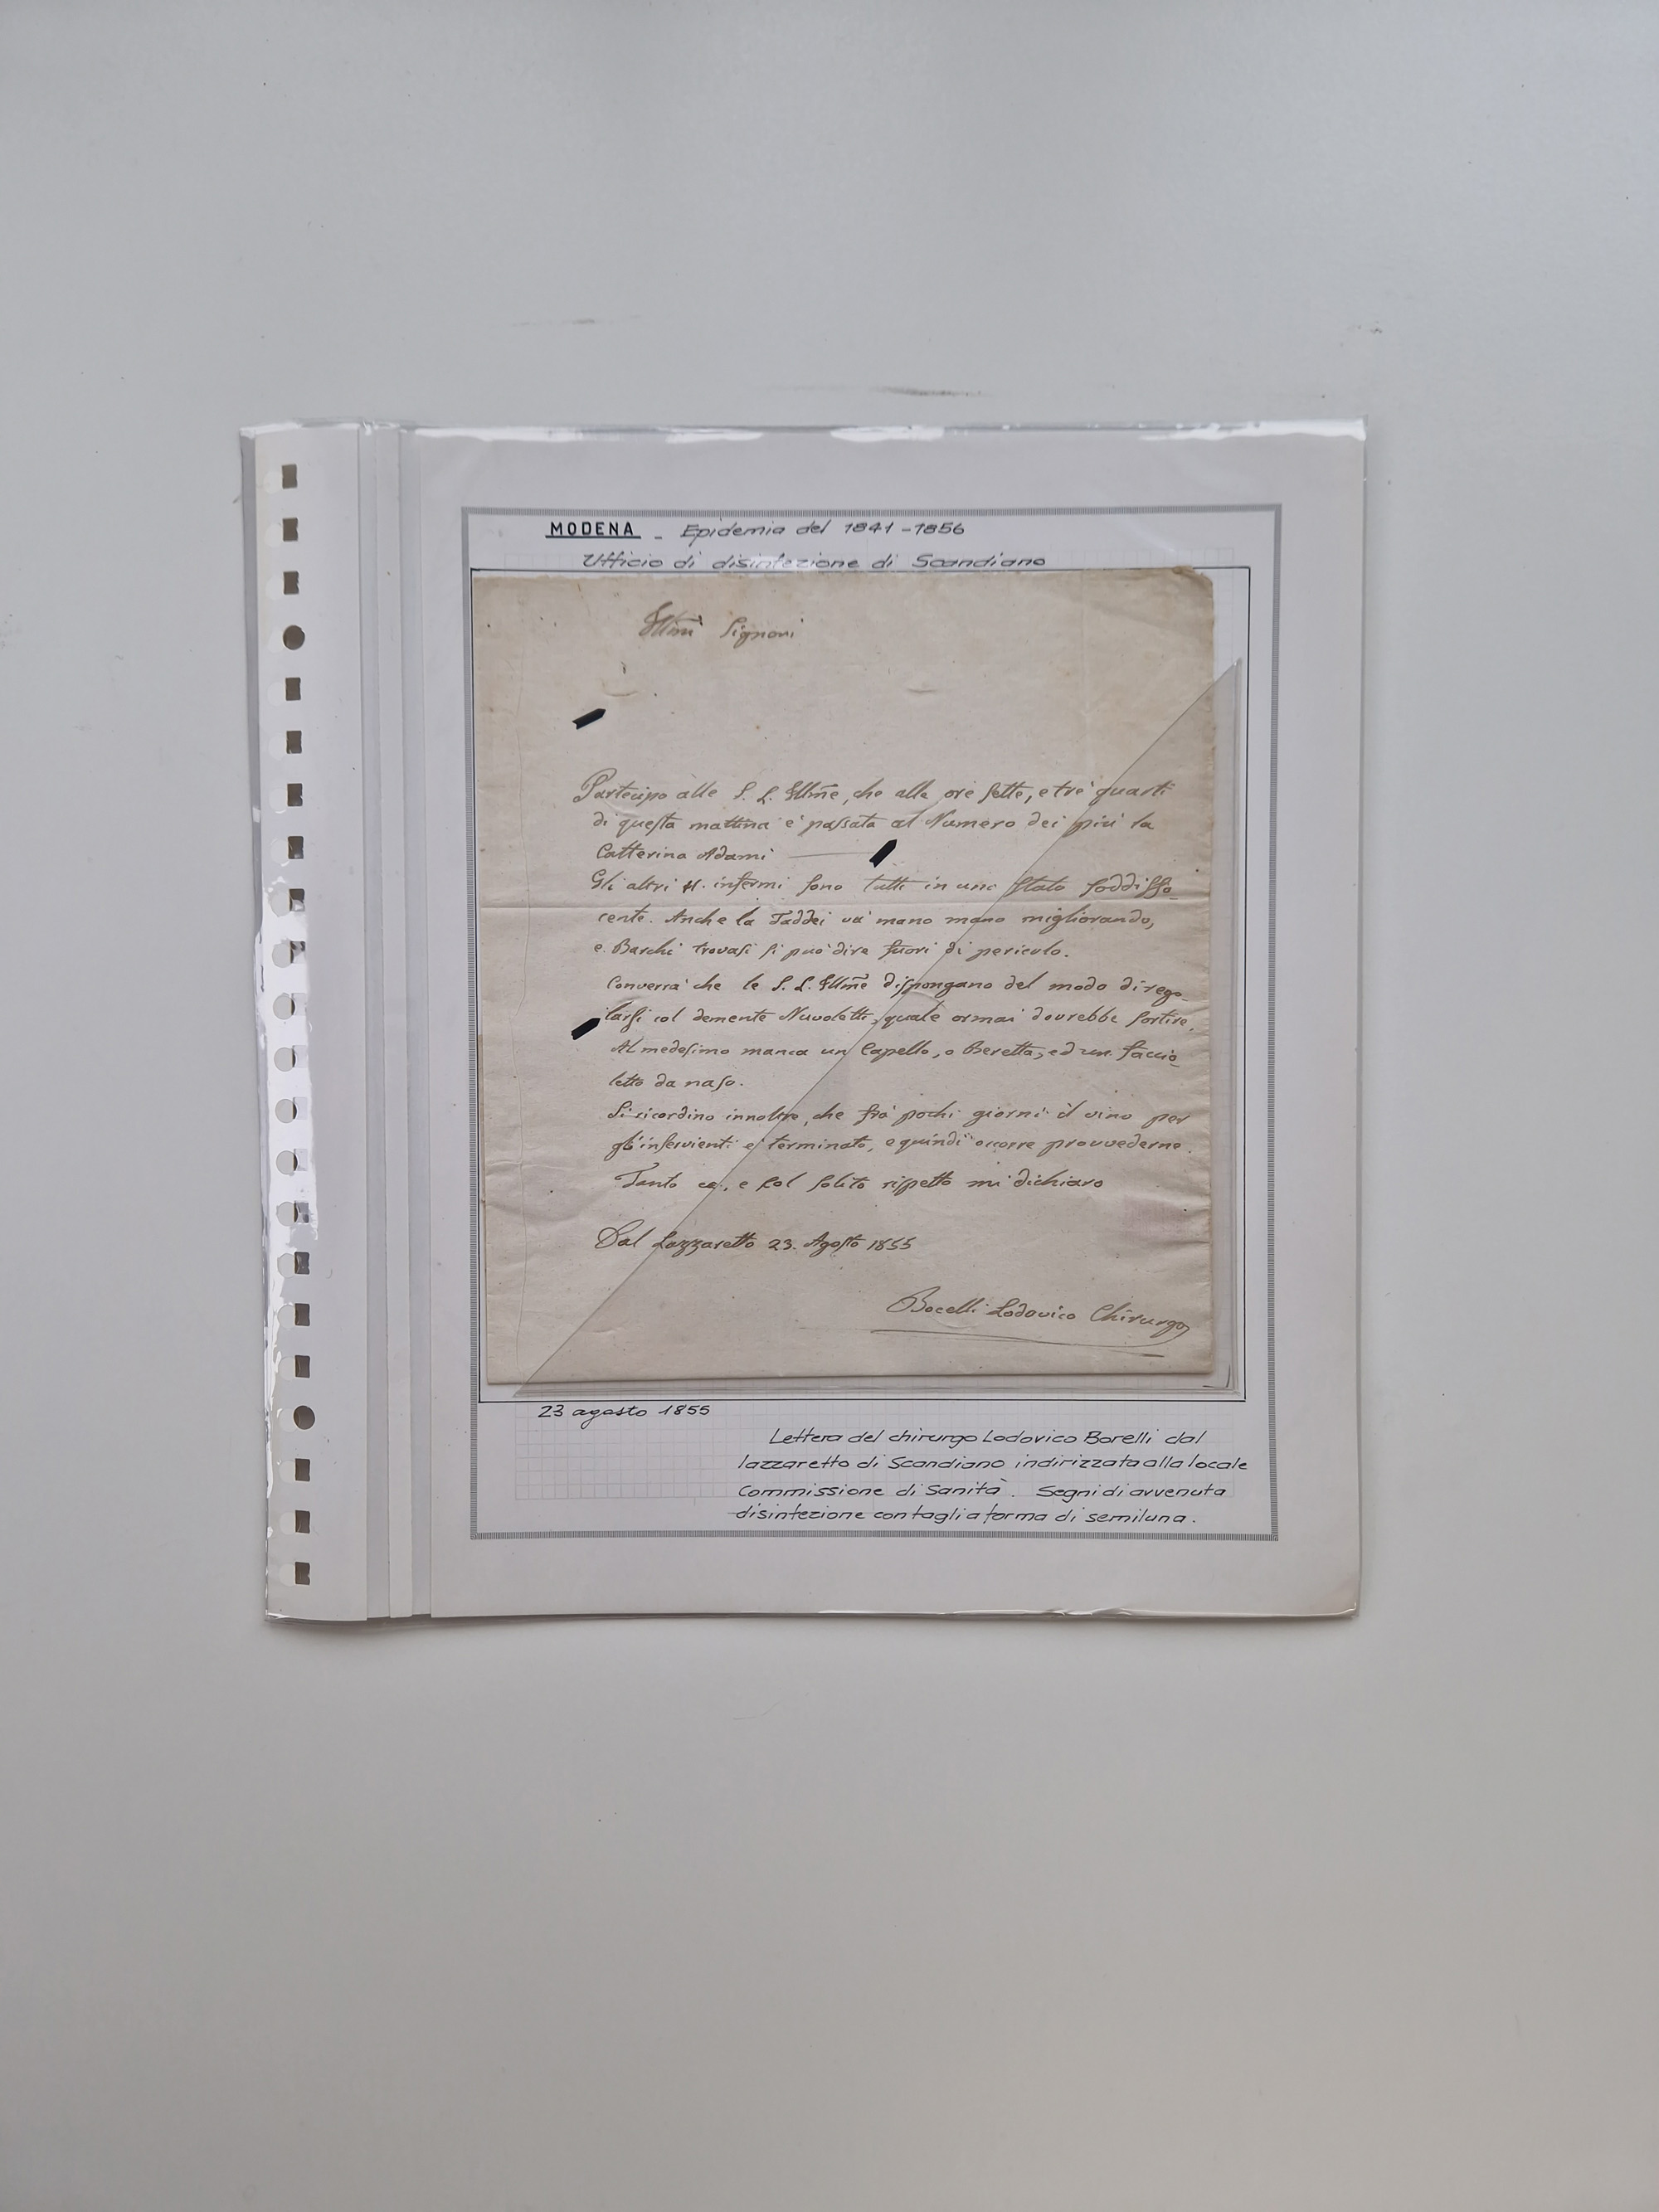 MODENA - Epidemia del 1841-1856
Ufficio di disinfezione di Scandiano
Illmi Signori
Partecipo alle S. L. Illme, che alle ore sette, e tre quarti
di questa mattina e' passata al Numero dei più la
Catterina Adami
Gli altri infermi sono tutti in uno stato soddisfa-
cente. Anche la Taddei va' mano mano migliorando,
e Barchi trovasi si può dire fuori di pericolo.
Converrà che le S. L. Illme dispongano del modo di rego-
larsi col demente Nuvoletti, quale ormai dovrebbe sortire.
Al medesimo manca un Capello, o Beretta, ed un faccio-
letto da naso.
Si ricordino innoltre, che frà pochi giorni il vino per
gl'inservienti e' terminato, e quindi occorre provvederne.
Tanto, e col solito rispetto mi dichiaro
Dal Lazzaretto 23. Agosto 1855
Bocelli Lodovico Chirurgo
23 agosto 1855
Lettera del chirurgo Lodovico Borelli dal
lazzaretto di Scandiano indirizzata alla locale
Commissione di Sanità. Segni di avvenuta
disinfezione con tagli a forma di semiluna.